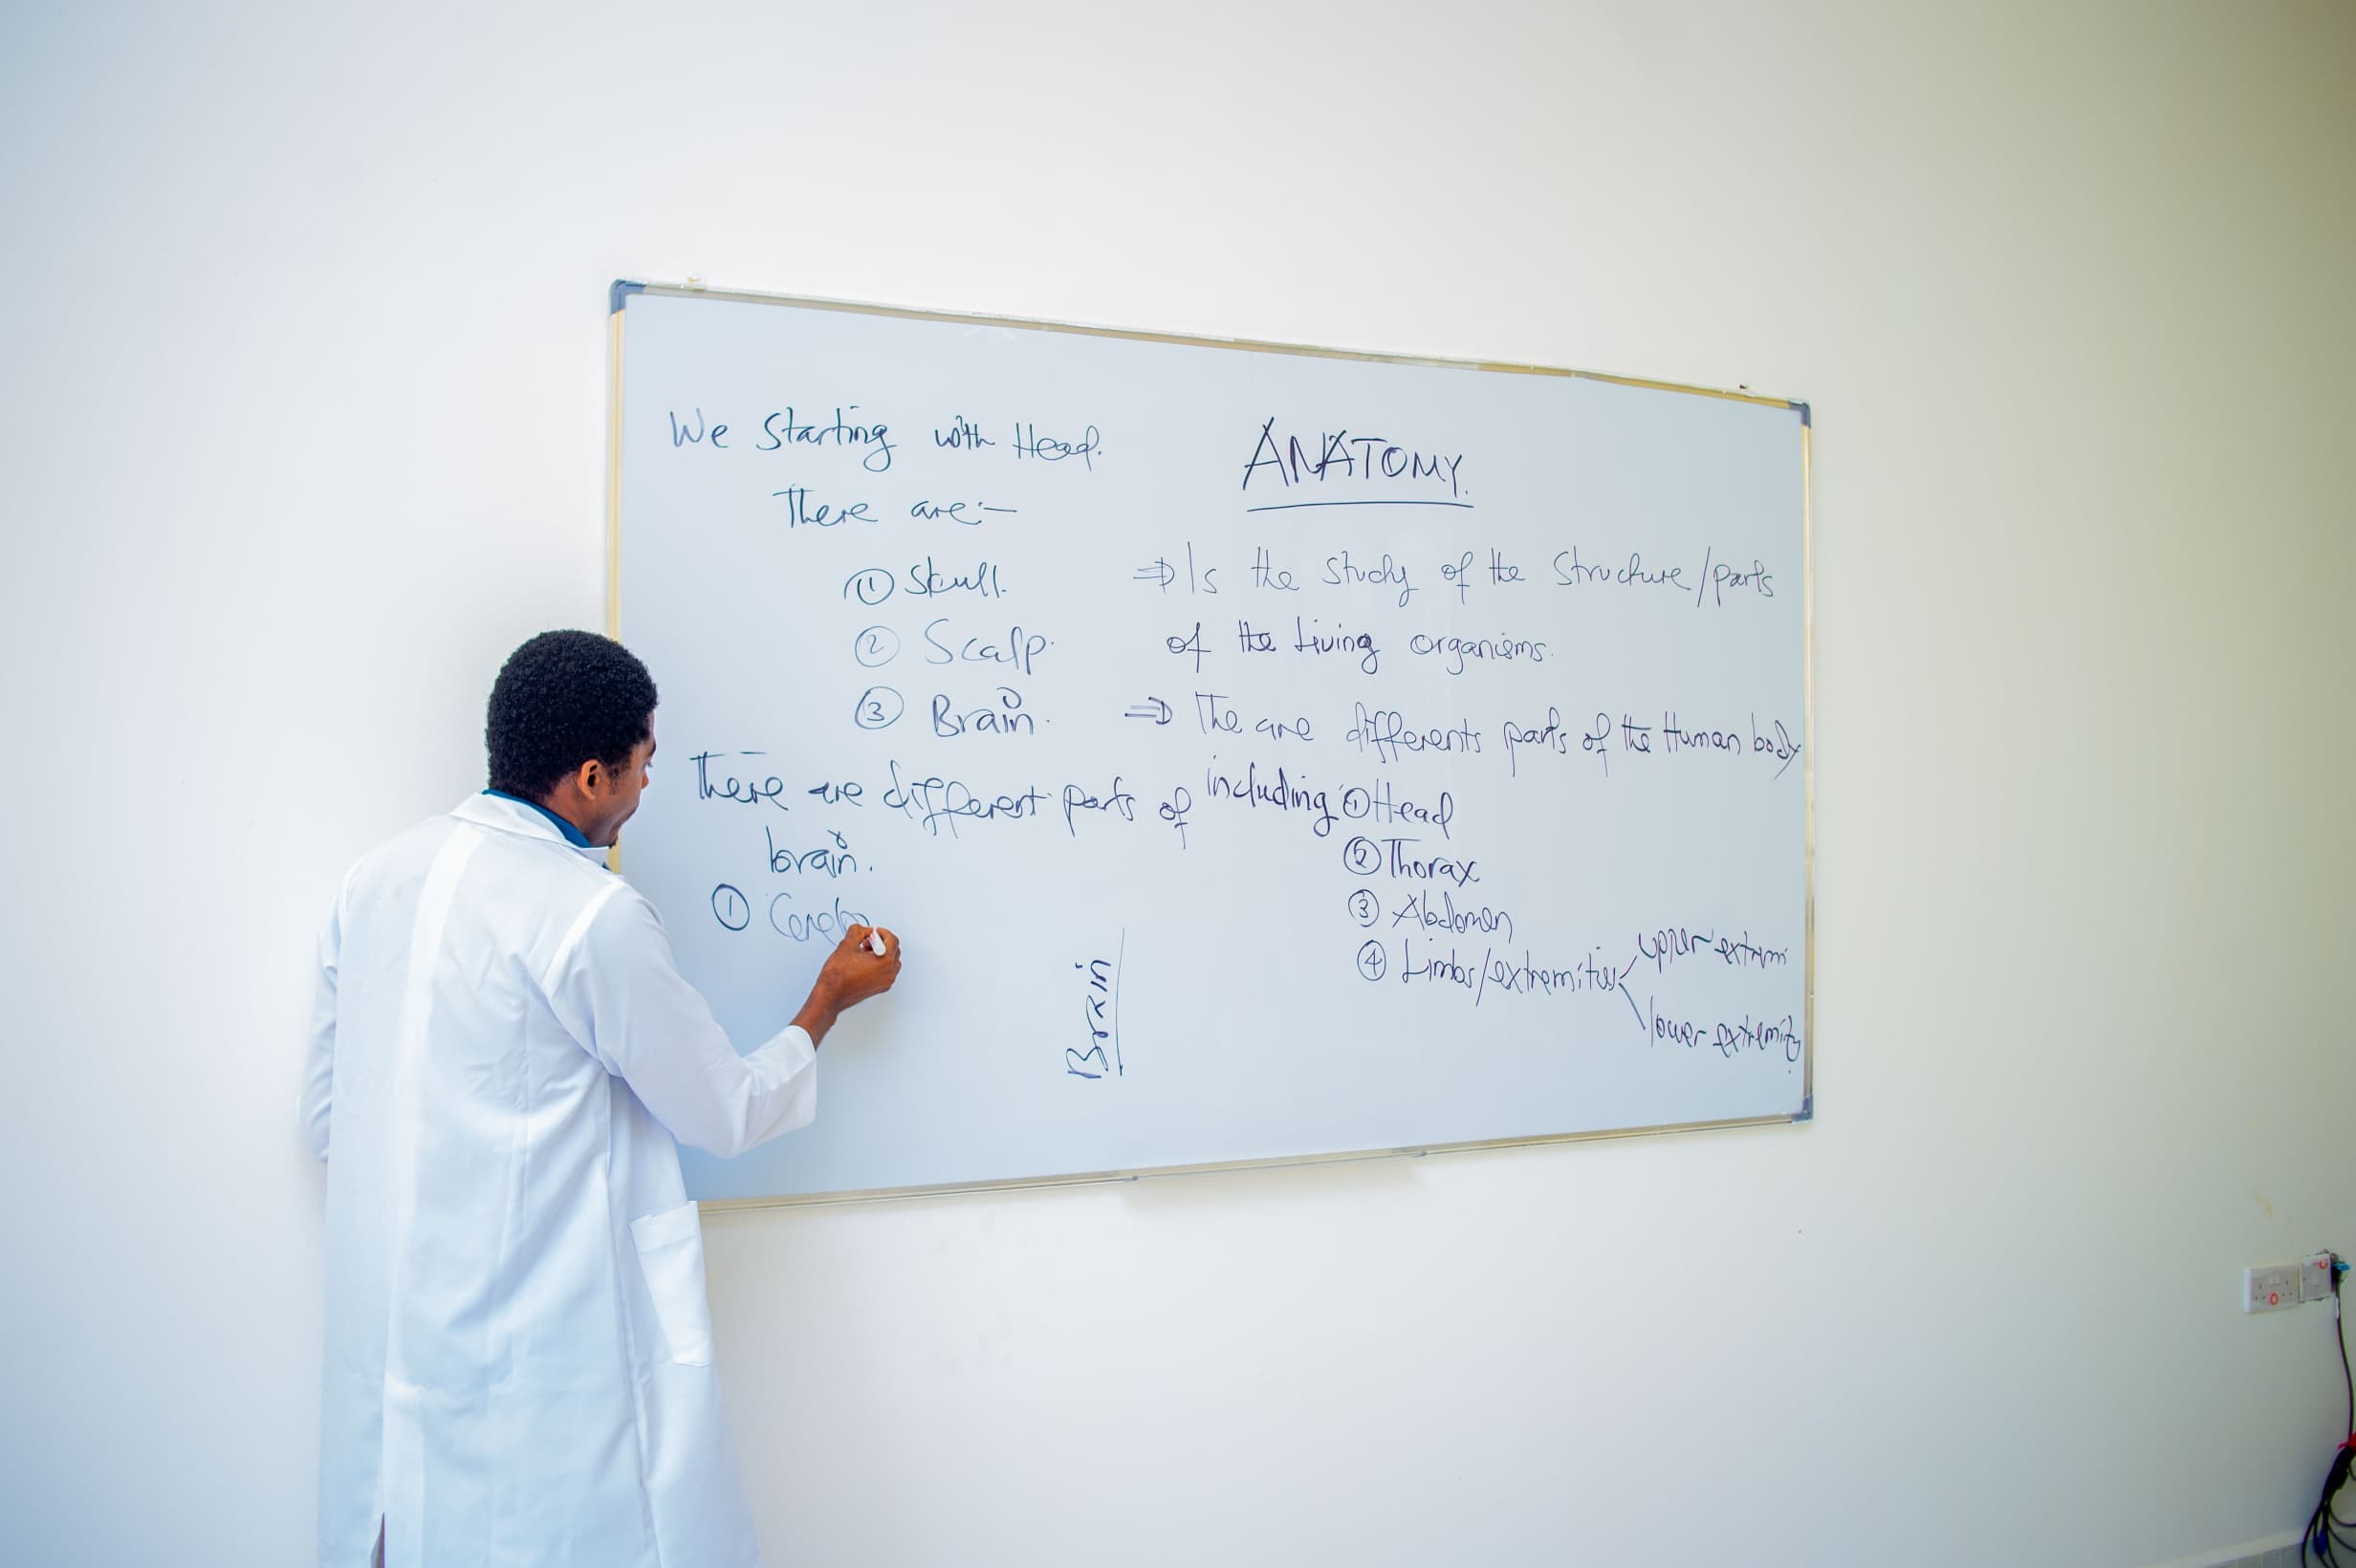 We Starting with Head.
There are:-
① Skull.
② Scalp.
③ Brain.
There are different parts of
brain.
①
Brain
ANATOMY.
⇒ Is the study of the Structure/parts
of the Living organisms.
⇒ The are differents parts of the Human body
including ① Head
② Thorax
③ Abdomen
④ Limbs/extremities
upper extremi
lower extremity